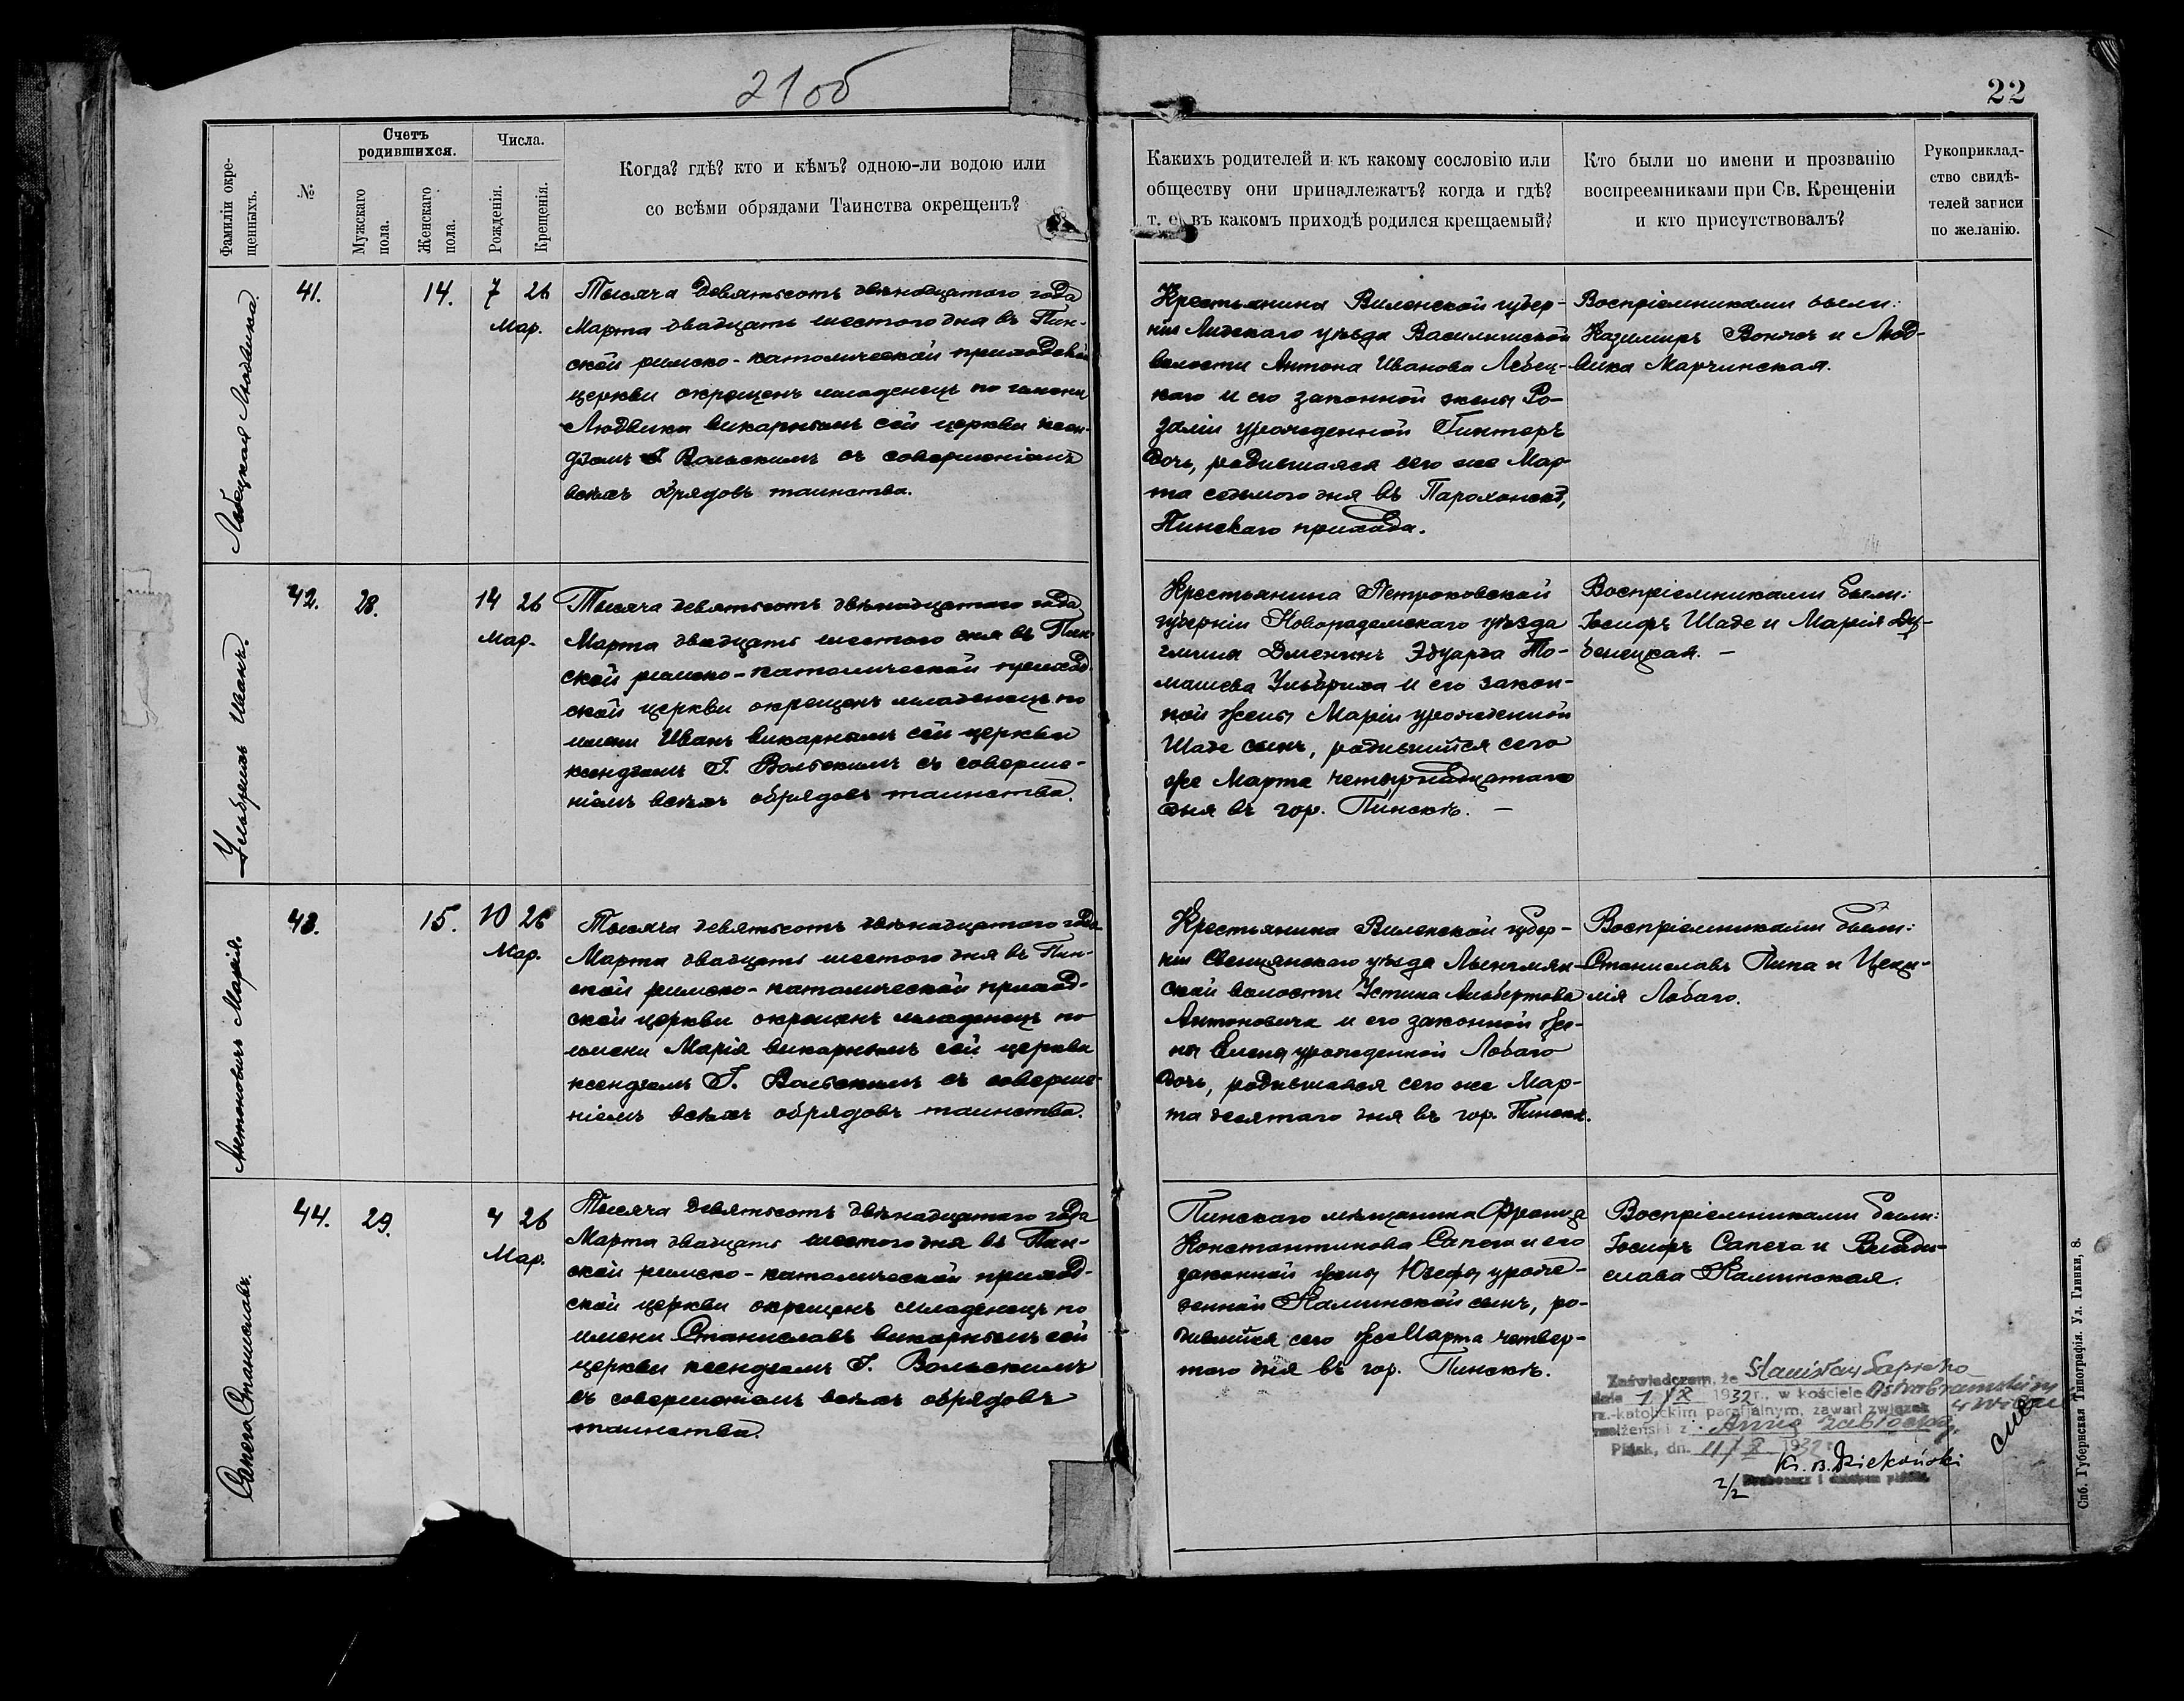 21 об
22
Фамиліи окре-
щенныхъ.
№
Счетъ
родившихся.
Мужскаго
пола.
Женскаго
пола.
Числа.
Рожденія.
Крещенія.
Когда? гдѣ? кто и кѣмъ? одною-ли водою или
со всѣми обрядами Таинства окрещенъ?
Какихъ родителей и къ какому сословію или
обществу они принадлежатъ? когда и гдѣ?
т. е. въ какомъ приходѣ родился крещаемый?
Кто были по имени и прозванію
воспреемниками при Св. Крещеніи
и кто присутствовалъ?
Рукоприклад-
ство свидѣ-
телей записи
по желанію.
Лебецкая Людвика.
41.
14.
7 26
Мар.
Тысяча девятьсотъ двѣнадцатого года
Марта двадцать шестого дня въ Пин-
ской римско-католической приходской
церкви окрещенъ младенецъ по имени
Людвика викарнымъ сей церкви ксен-
дзомъ І. Вольскимъ съ совершеніемъ
всѣхъ обрядовъ таинства.
Крестьянина Виленской губер-
ніи Лидскаго уѣзда Василишской
волости Антона Иванова Лебец-
каго и его законной жены Ро-
заліи урожденной Гинтеръ
дочь, родившаяся сего же Мар-
та седьмого дня въ Парохонскѣ,
Пинскаго прихода.
Воспріемниками были:
Казимиръ и Люд-
вика Марчинская.
Ульбрихъ Иванъ.
42.
28.
14 26
Мар.
Тысяча девятьсотъ двѣнадцатого года
Марта двадцать шестого дня въ Пин-
ской римско-католической приход-
ской церкви окрещенъ младенецъ по
имени Иванъ викарнымъ сей церкви
ксендзомъ І. Вольскимъ съ соверше-
ніемъ всѣхъ обрядовъ таинства.
Крестьянина Петроковской
губерніи Новорадомскаго уѣзда
гмины Дмснинъ Эдуарда То-
машева Ульбриха и его закон-
ной жены Маріи урожденной
Шаде сынъ, родившійся сего
же Марта четырнадцатаго
дня въ гор. Пинскѣ. —
Воспріемниками были:
Іосифъ Шаде и Марія Ду-
бенецкая. —
Антоновичъ Марія.
43.
15.
10 26
Мар.
Тысяча девятьсотъ двѣнадцатого года
Марта двадцать шестого дня въ Пин-
ской римско-католической приход-
ской церкви окрещенъ младенецъ по
имени Марія викарнымъ сей церкви
ксендзомъ І. Вольскимъ съ соверше-
ніемъ всѣхъ обрядовъ таинства.
Крестьянина Виленской губер-
ніи Свенцянскаго уѣзда Лынгмян-
ской волости Устина Альбертова
Антоновича и его законной же-
ны Елены урожденной Лобаго
дочь, родившаяся сего же Мар-
та десятаго дня въ гор. Пинскѣ.
Воспріемниками были:
Станиславъ Пипа и Цеци-
лія Лобаго.
Сапега Станиславъ.
44.
29.
4 26
Мар.
Тысяча девятьсотъ двѣнадцатого года
Марта двадцать шестого дня въ Пин-
ской римско-католической приход-
ской церкви окрещенъ младенецъ по
имени Станиславъ викарнымъ сей
церкви ксендзомъ І. Вольскимъ
съ совершеніемъ всѣхъ обрядовъ
таинства.
Пинскаго мѣщанина Франца
Константинова Сапега и его
законной жены Юзефы урож-
денной Калинской сынъ, ро-
дившійся сего же Марта четвер-
того дня въ гор. Пинскѣ.
Воспріемниками были:
Іосифъ Сапега и Влади-
слава Калинская.
Zaświadczam, że Stanisław Sapieha
dnia 1/X 1932 r., w kościele Ostrobramskim
rz.-katolickim parafjalnym, zawarł związek w Wilnie
małżeński z Anną Zabłocką.
Pińsk, dn. 11/X 1932 r.
Ks. B. Dziekoński
Спб. Губернская Типографія. Ул. Глинки, 8.